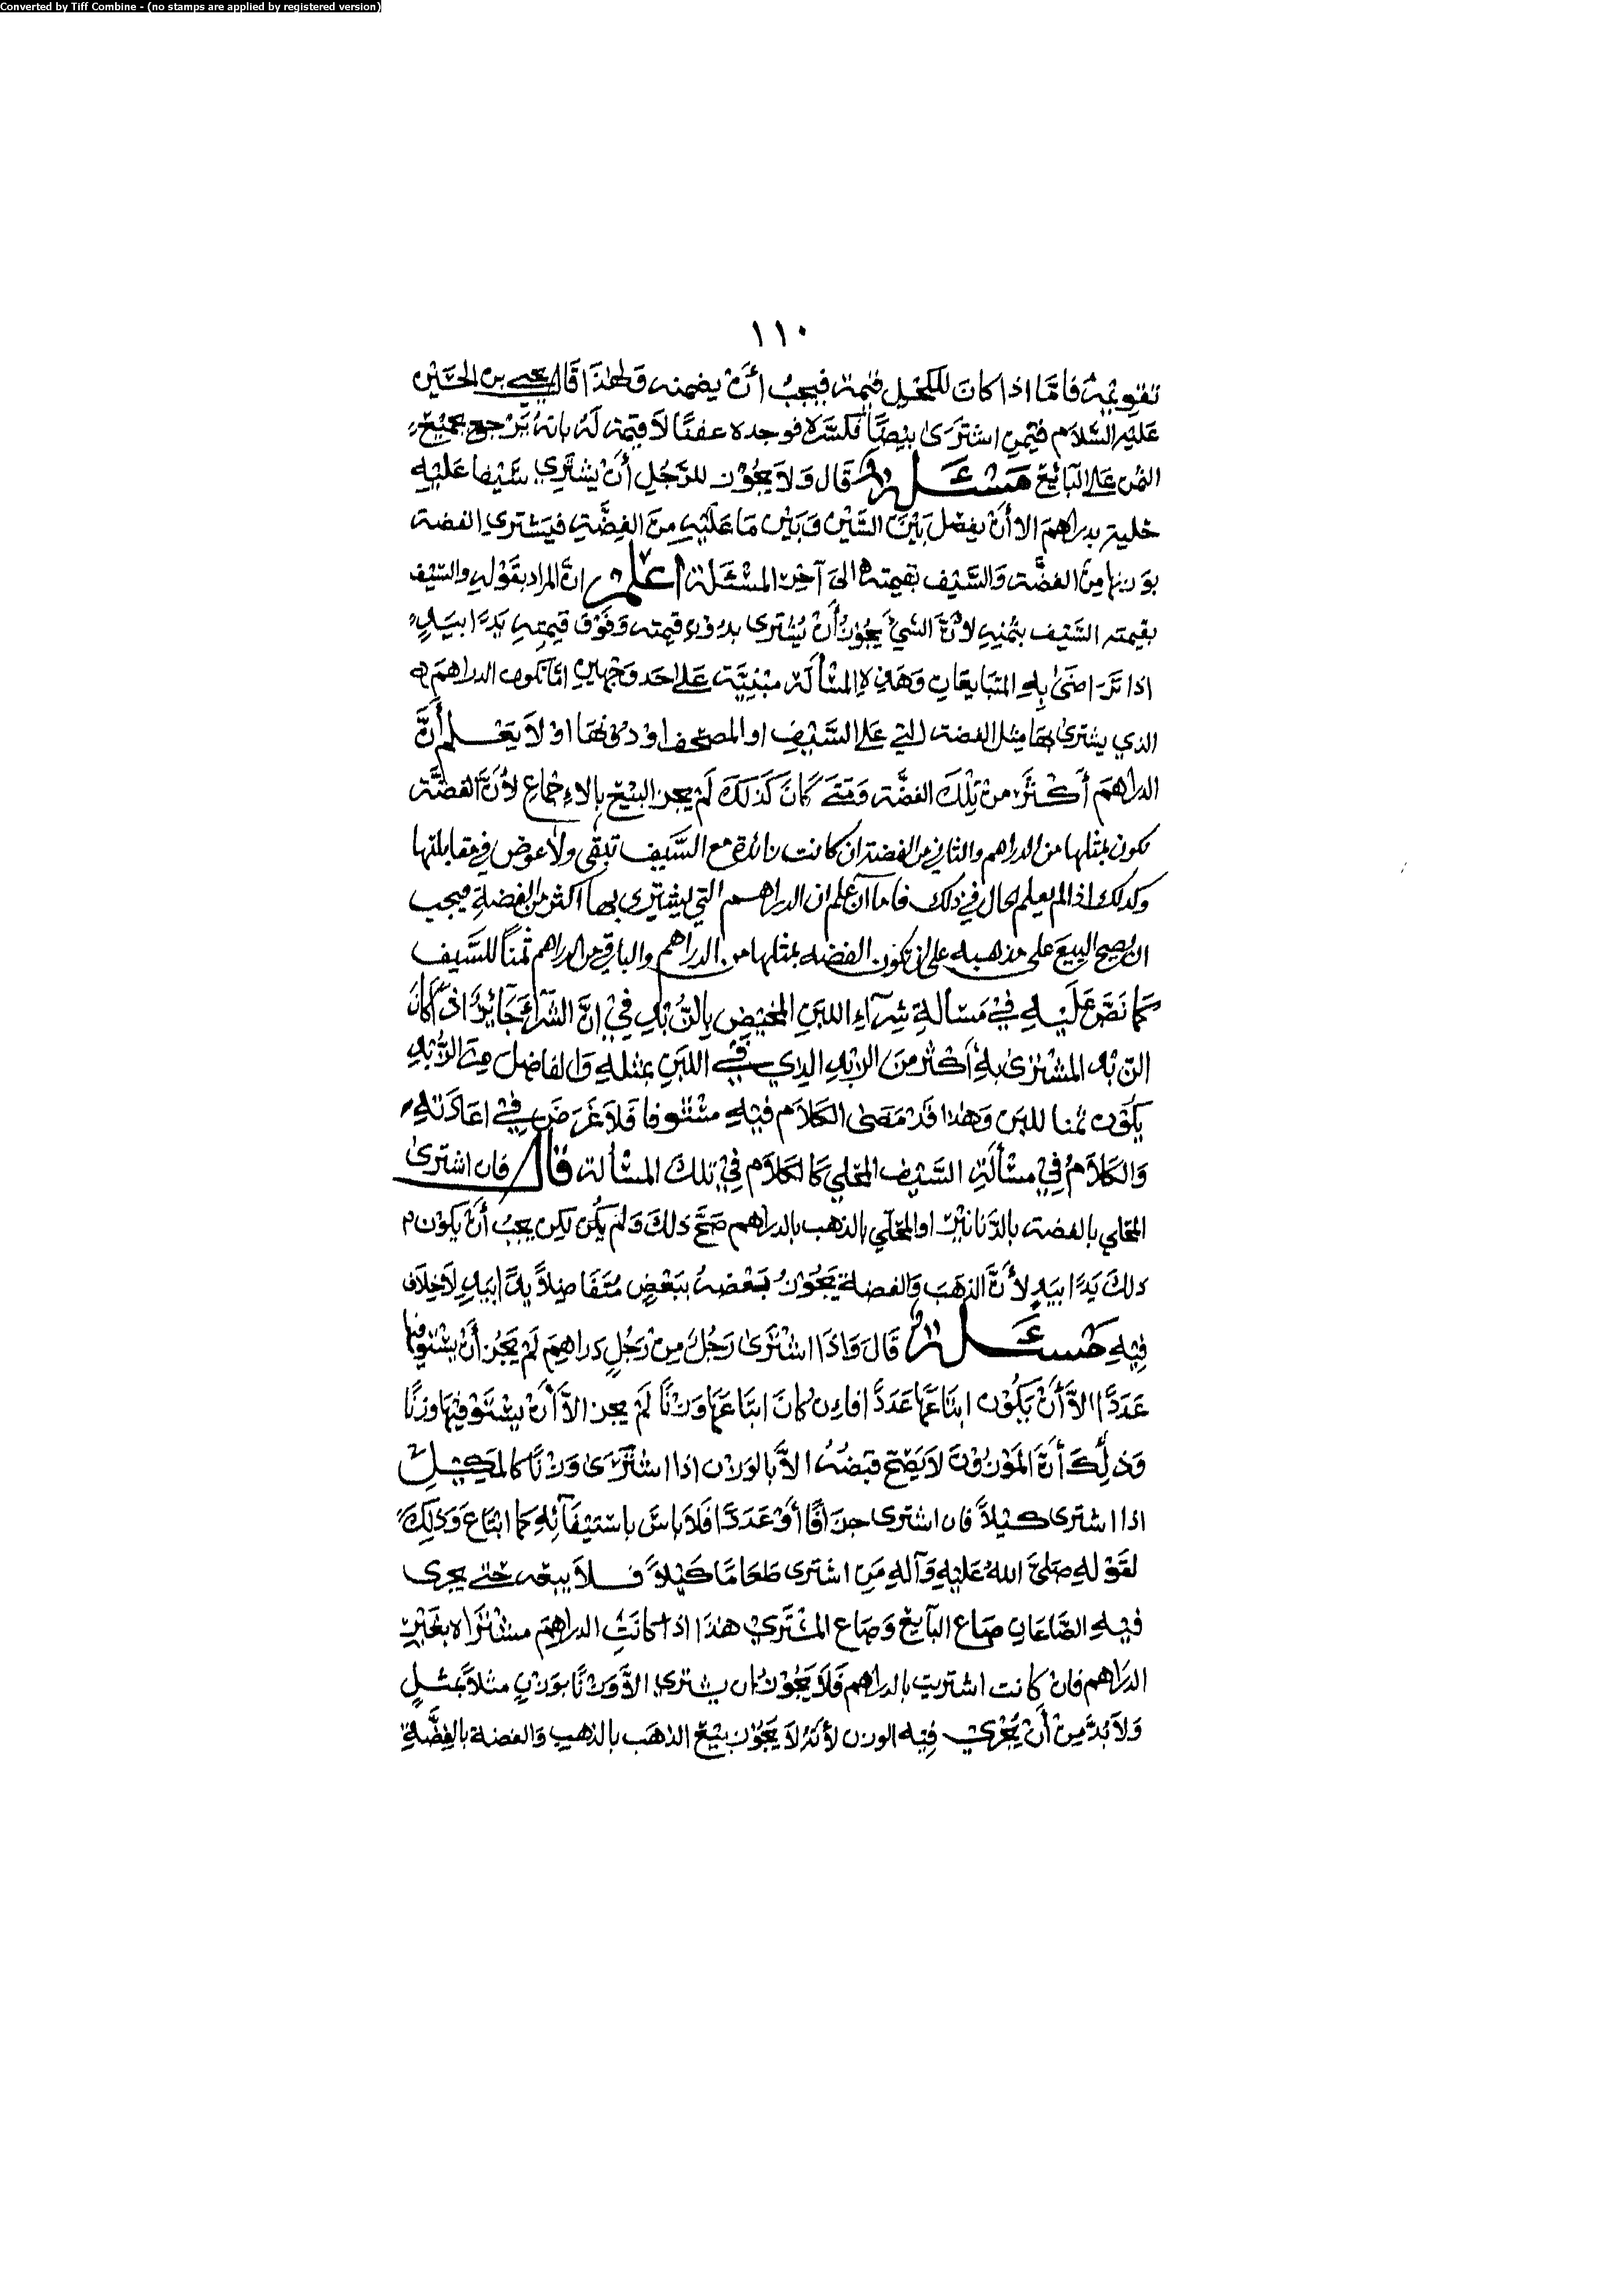 Converted by Tiff Combine - (no stamps are applied by registered version)
١١٠
تقويمه فَامَّا اذا كانَ للكحْل قيمة فيجبُ أنْ يضمنه وَلهٰذَا قَالَ يحيى بن الحسَيْن
عَليْه السَّلام فيمن اشترَىٰ بيْضًا فكسَرَه فوجده عفنًا لَا قيمة لَهُ بانهُ يَرجع بجميْع
الثمن عَلى البَائِع مَسْئَلة قَال وَلَا يَجُوْز للرَّجُلِ أنْ يشتَري سَيْفا عَليْهِ
حلية بدراهمَ الا أنْ يفصل بَيْنَ السَّيْف وَبَيْن مَا عَليْهِ مِنَ الفِضَّةِ فيَشتري الفضة
بوَزنها مِنْ الفضَّة وَالسَّيْف بقيمته الىَ آخر المسْئَلة اعلم انَّ المراد بقَوْلهِ والسَّيْف
بقيمته السَّيْف بثمنهِ لأنَّ الشئَ يجوْزُ أنْ يُشترى بدُوْن قيمته وَفَوْق قيمتِهِ يَدًا بيَدٍ
اذا تَرَاضىٰ بِهِ المتَبَايعَان وَهَذِهِ المسْألَة مَبْنيَّة عَلى احَد وَجْهين امَّا تكون الدراهمَ
الذي يشترىٰ بهَا مثل الفضة التي عَلى السَّيْفِ او المصحف اوْ دُوْنهَا اوْ لَا يَعْلم أنَّ
الدراهمَ أكْثَرَ منْ تِلْكَ الفضَّة وَمَتىَ كَانَ كَذَلكَ لَمْ يجز البيْع بِالاجْماعِ لأَنَّ الفضَّة
تكون بمثلها من الدراهم والثاني من الفضة ان كانت زائدة مع السَّيف تبقى ولا عوض في مقابلتها
وكذلك اذا لم يعلم الحال في ذلك فاما ان علم ان الدراهم التي يشترى بها اكثر من الفضة فيجب
ان يصح البيع على مذهبه على ان تكون الفضه بمثلها من الدراهم والباقي من الدراهم ثمنًا للسَّيف
كَمَا نَصَّ عَلَيْهِ فيْ مَسْألةِ شِرآءِ اللبَنِ المخيْضِ بِالزُّبْدِ فيْ انَّ الشرَآءَ جَآئِزٌ اذَا كَانَ
الزبْد المشْترىٰ بهِ أكثر منَ الزبْدِ الذِي في اللبَنِ بمثلهِ وَالفاضل مِنَ الزُّبْدِ
يكوْن ثمنا للبَن وَهٰذا قَدْ مَضىٰ الكَلَام فيْهِ مسْتَوفا فَلَا غَرَضَ فيْ اعَادَتِهِ
وَالكَلَامُ فيْ مسْألَةِ السَّيْف المحَلي كَالكَلَام فيْ تلكَ المسْألة قَال فان اشترىٰ
المحلي بالفضة بالدَّنانيْر او المحَلّي بالذهب بالدراهم صَحَّ ذلكَ وَلم يكُن لكِن يجبُ أنْ يكوْن
ذلكَ يَدًا بيَدٍ لأنَّ الذهَبَ وَالفضة يَجَوْزُ بَعْضهُ ببَعْضٍ مُتَفَاضِلاً يدًا بيَدٍ لَا خِلَاف
فِيْهِ مَسئَلة قَالَ وَاذَا اشْترَىٰ رَجُلٌ مِنْ رَجُلٍ دراهِمَ لَمْ يَجُز أنْ يسْتوفيها
عَدَدًا الاَّ أَنْ يَكُوْن ابتَاعَهَا عَدَدًا فاِن كانَ ابتَاعَهَا وَزنًا لَمْ يجز الاَّ أنْ يسْتَوْفيْهَا وزنًا
وَذلِكَ أنَّ المَوْزوْنَ لَا يَصْح قبضهُ الاَّ بالوَزن اذا اشترَىٰ وَزنًا كَالمكيْلِ
اذا اشترى كيْلاً فان اشترى جزَافًا أوْ عَدَدًا فلَا بَاسَ باسْتيْفَآئِهِ كمَا ابتَاعَ وَذلِكَ
لقَوْلهِ صَلىَّ اللهُ عَليْهِ وَآلهِ مَنِ اشترى طَعَامًا كَيْلاً فلا يبعْه حَتى يجرى
فيْهِ الصَّاعَانِ صَاع البَآئِع وَصَاع المشْتَريْ هٰذَا اذَا كانَتِ الدراهمَ مشتراه بغَيْرِ
الدَراهم فانْ كانت اشتريت بالدراهم فَلَا يَجُوْزُ ان يشترىٰ الاَّ وَزنًا بوَزنٍ مثلاً بمثلٍ
وَلَا بُدَّ مِنْ أنْ يُجْريْ فِيْه الوزن لأنهُ لَا يَجَوْز بيْع الذهَب بالذهب وَالفضة بالفِضَّةِ